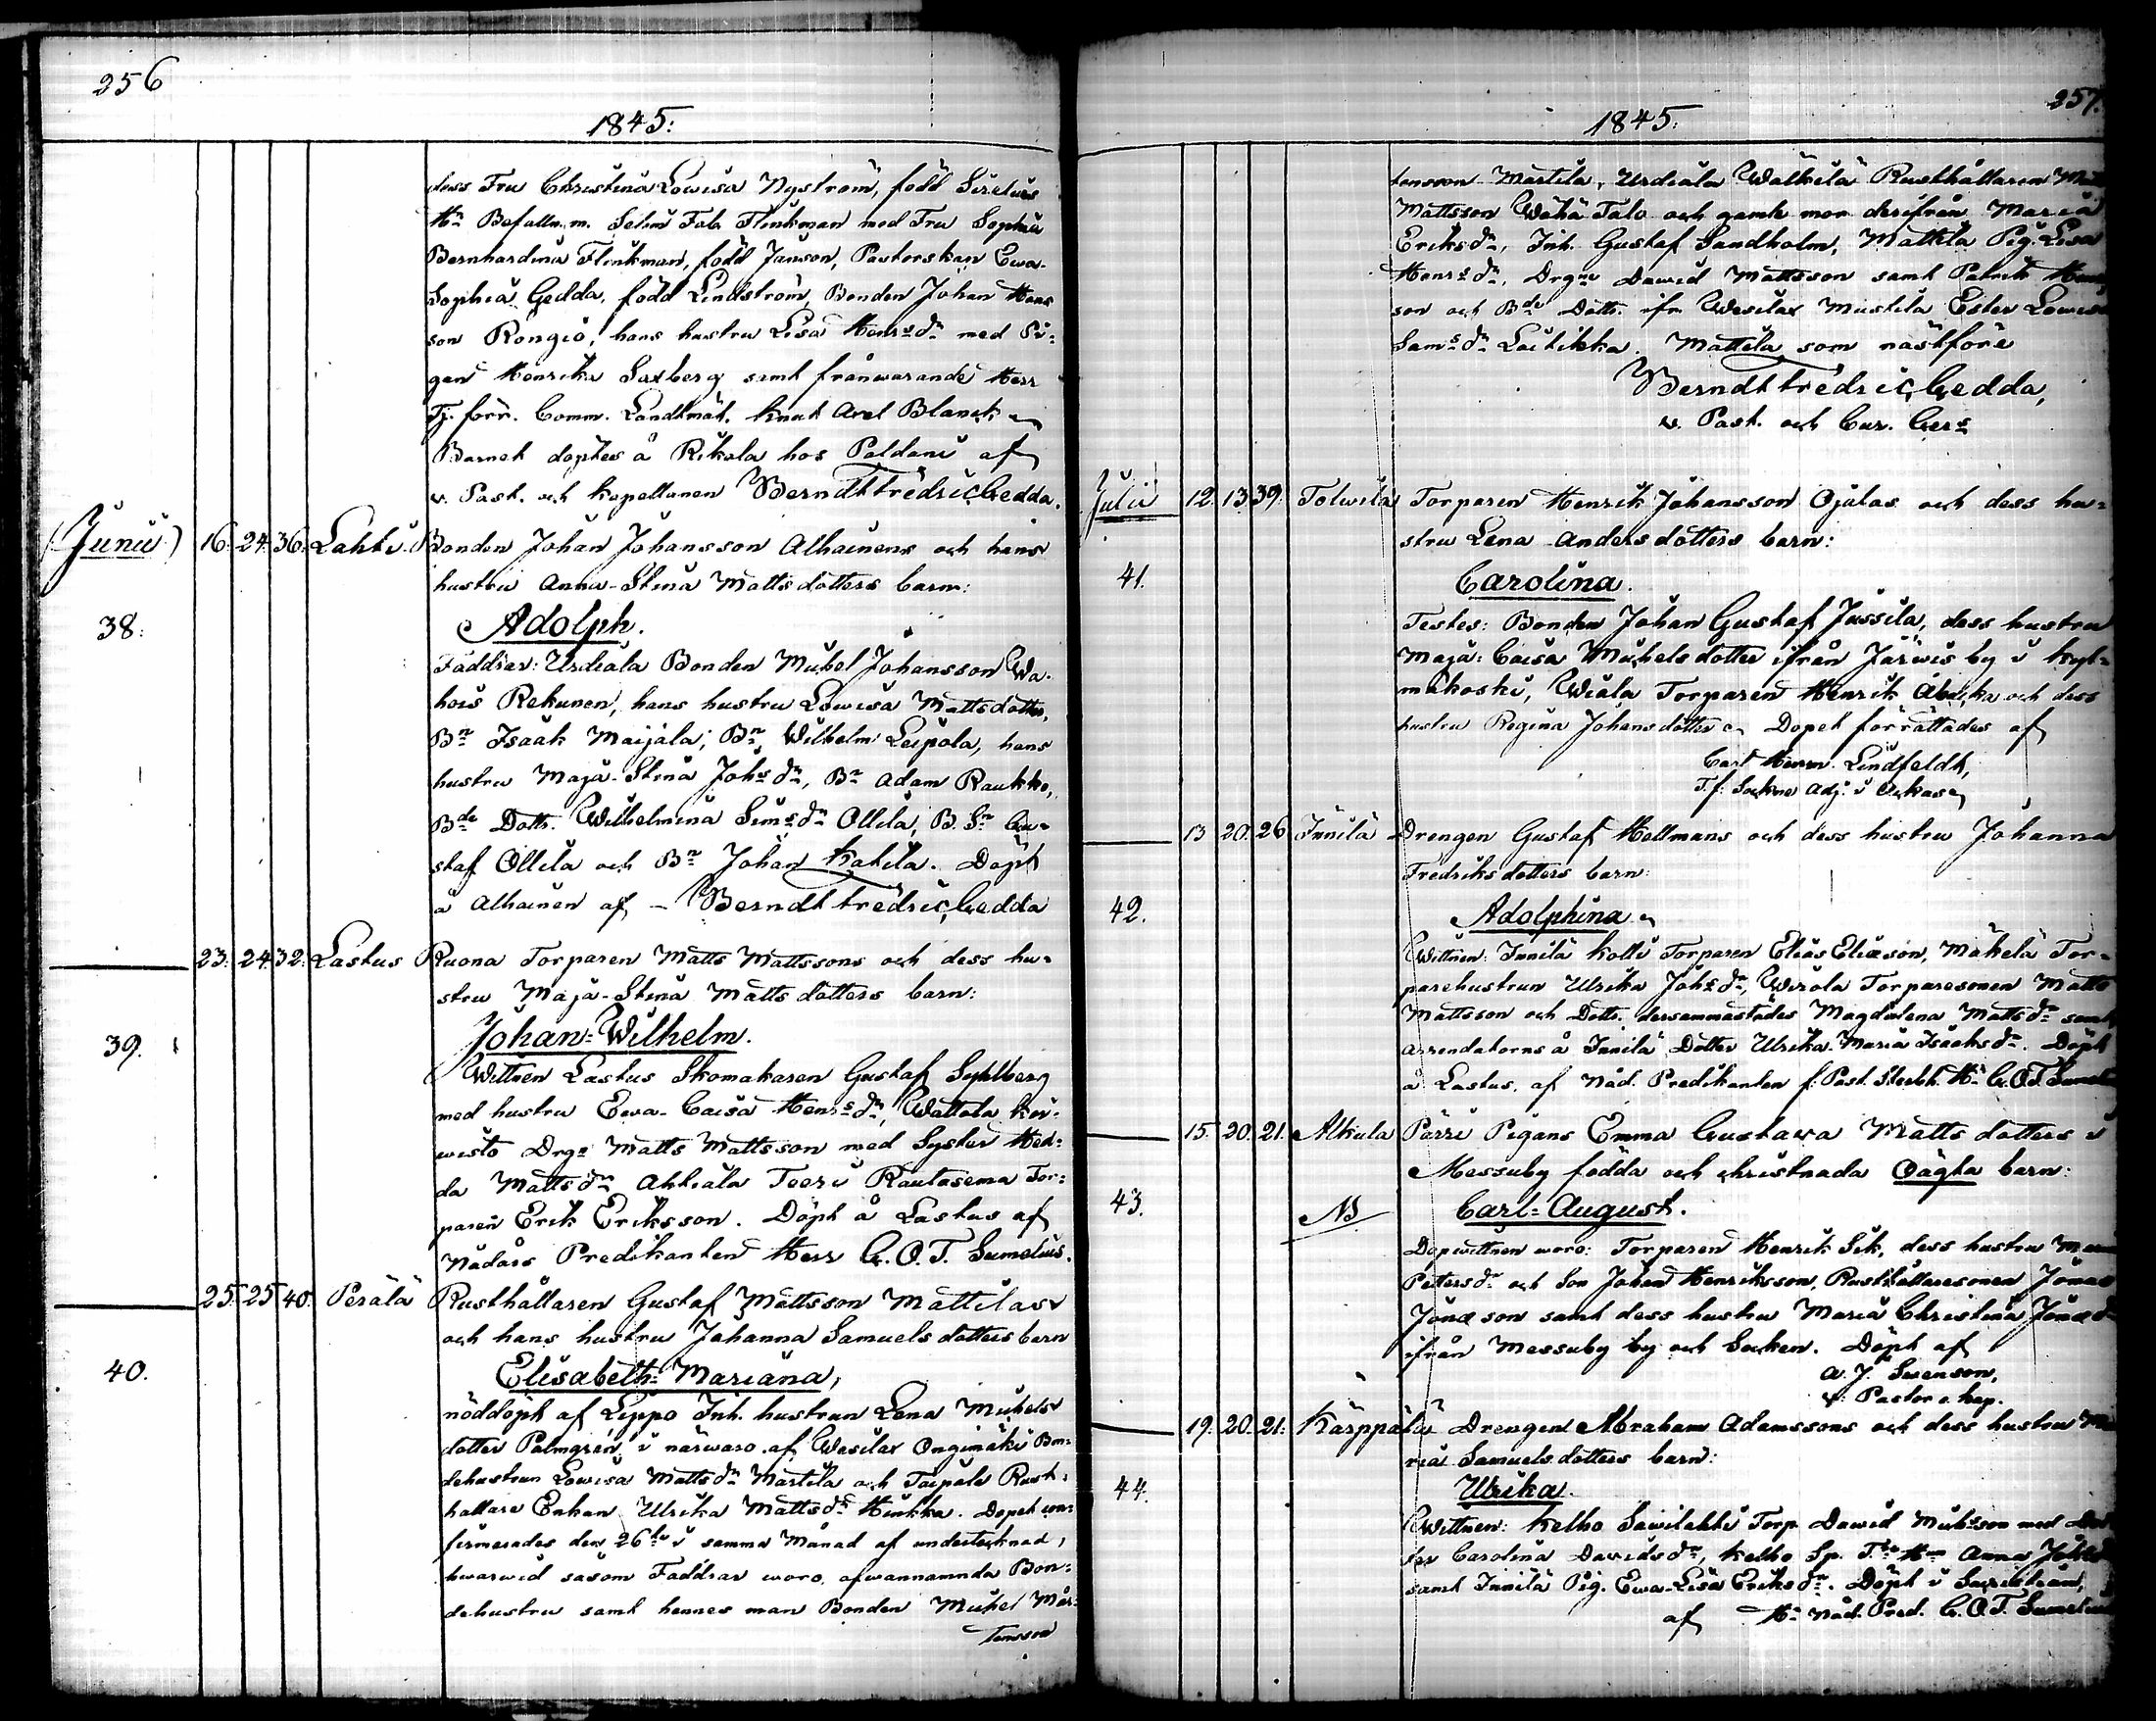 256
1845:
dess Fru Christina Lowisa Nyström, född Sirelius
Hr Befalln.m. Selim Fab. Flinkman med Fru Sophia
Bernhardina Flinkman, född Janson, Pastorskan Ewa
Sophia Gedda, född Lindström, Bonden Johan Hans
son Rongio, hans hustru Lisa Henrsdr med Pi-
gan Henrika Saxberg samt frånwarande Herr
Tj. förr. Comm. Landtmät. Knut Axel Blanck
Barnet döptes å Rikala hos Paldani af
v. Past. och Kapellanen Berndt Fredric Gedda.
(Junii) 16. 24. 36. Lahti. Bonden Johan Johansson Alhainens och hans
hustru Anna-Stina Mattsdotters barn:
38: Adolph.
Faddrar: Urdiala Bonden Mickel Johansson Wa-
hois Rekunen, hans hustru Lowisa Mattsdotter,
Bn Isaak Maijala; Bn Wilhelm Leipola, hans
hustru Maja-Stina Johsdr, Bn Adam Raukko,
Bde Dottr. Wilhelmina Simsdr Ollila, B. Sn Gu-
staf Ollila och Bn Johan Katila. Döpt
å Alhainen af - Berndt Fredric Gedda
23. 24. 32. Lastus Ruona Torparen Matts Mattssons och dess hu-
stru Maja-Stina Mattsdotters barn:
39. Johan-Wilhelm.
Wittnen Lastus Skomakaren Gustaf Syhlberg
med hustru Ewa-Caisa Henrsdr, Wattola Koi-
wisto Drgn Matts Mattsson med Syster Hed-
da Mattsdr Ahtiala Teeri Rautasema Tor-
paren Erik Eriksson. Döpt å Lastus af
Nådårs Predikanten Herr G. O. T. Sumelius.
25. 25. 40. Perälä Rusthållaren Gustaf Mattsson Mattilas
och hans hustru Johanna Samuelsdotters barn
40. Elisabeth-Mariana,
nöddöpt af Leppo Inh. hustrun Lena Mickels
dotter Palmgrén i närwaro af Wesilax Ongimäki Bon-
dehustrun Lowisa Mattsdr Märtila och Taipale Rust-
hållare Enkan Ulrika Mattsdr Hinkka. Dopet con-
firmerades den 26te i samma Månad af undertecknad,
hwarwid såsom Faddrar woro, ofwannämnda Bon-
dehustru samt hennes man Bonden Mickel Mår-
tensson
257.
1845:
tensson Märtila, Urdiala Walkila Rusthållaren
Mattsson Wähä Talo och gamle mor derifrån Maria
Eriksdr, Inh. Gustaf Sandholm, Mattila Pig. Lisa
Henrsdr, Drgne Dawid Mattsson samt Patrik
son och Bde Dottr. ifr. Wesilax Mustila Ester Lowisa
Samsdr Laitikka. Mattila som näst före
Berndt Fredric Gedda,
v. Past. och Cur. Gers
Julii 12. 13. 39. Tolwila Torparen Henrik Johansson Ojalas och dess hu-
stru Lena Andersdotters barn:
41. Carolina.
Testes: Bonden Johan Gustaf Jussila, dess hustru
Maja-Caisa Mickelsdotter ifrån Järwis by i Kyl-
mäkoski, Wiala Torparen Henrik och dess
hustru Regina Johansdotter. Dopet förrättades af
Carl Herm. Lindfeldt,
T.f. Sockne Adj. i Ackas
13 20. 26 Innilä Drengen Gustaf Hellmans och dess hustru Johanna
Fredriksdotters barn:
42. Adolphina
Wittnen: Innilä Kotti Torparen Elias Eliæson, Mäkelä Tor-
parehustrun Ulrika Johsdr, Wirola Torparesonen Matts
Mattsson och Dottr. dersammastädes Magdalena Mattsdr samt
Arrendatorns å Innilä Dotter Ulrika-Maria Isaaksdr. Döpt
å Lastus, af Nåd. Predikanten f. Past. Sterbh. Hr G.O.T. Sumelius
15. 20. 21. Alkula Pärri Pigans Emma Gustava Mattsdotters i
Messuby födda och christnada Oägta barn:
43. NB Carl-August.
Dopwittnen woro: Torparen Henrik Sik, dess hustru
Petersdr och Son Johan Henriksson, Rusthållaresonen Jonas
Jonæson samt dess hustru Maria Christina Jonæd
ifrån Messuby by och Socken. Döpt af
A. J. Swenson,
v. Pastor o Kap.
19. 20. 21. Kärppälä Drengen Abraham Adamssons och dess hustru Ma
ria Samuelsdotters barn:
44. Ulrika.
Wittnen: Kelho Sawilahti Torp. Dawid Mickson med Dot
ter Carolina Dawidsdr, Kelho Sp. Anna
samt Innilä Pig. Ewa-Lisa Eriksdr. Döpt i Sacristian,
af Hr Nåd. Pred. G. O. T. Sumelius